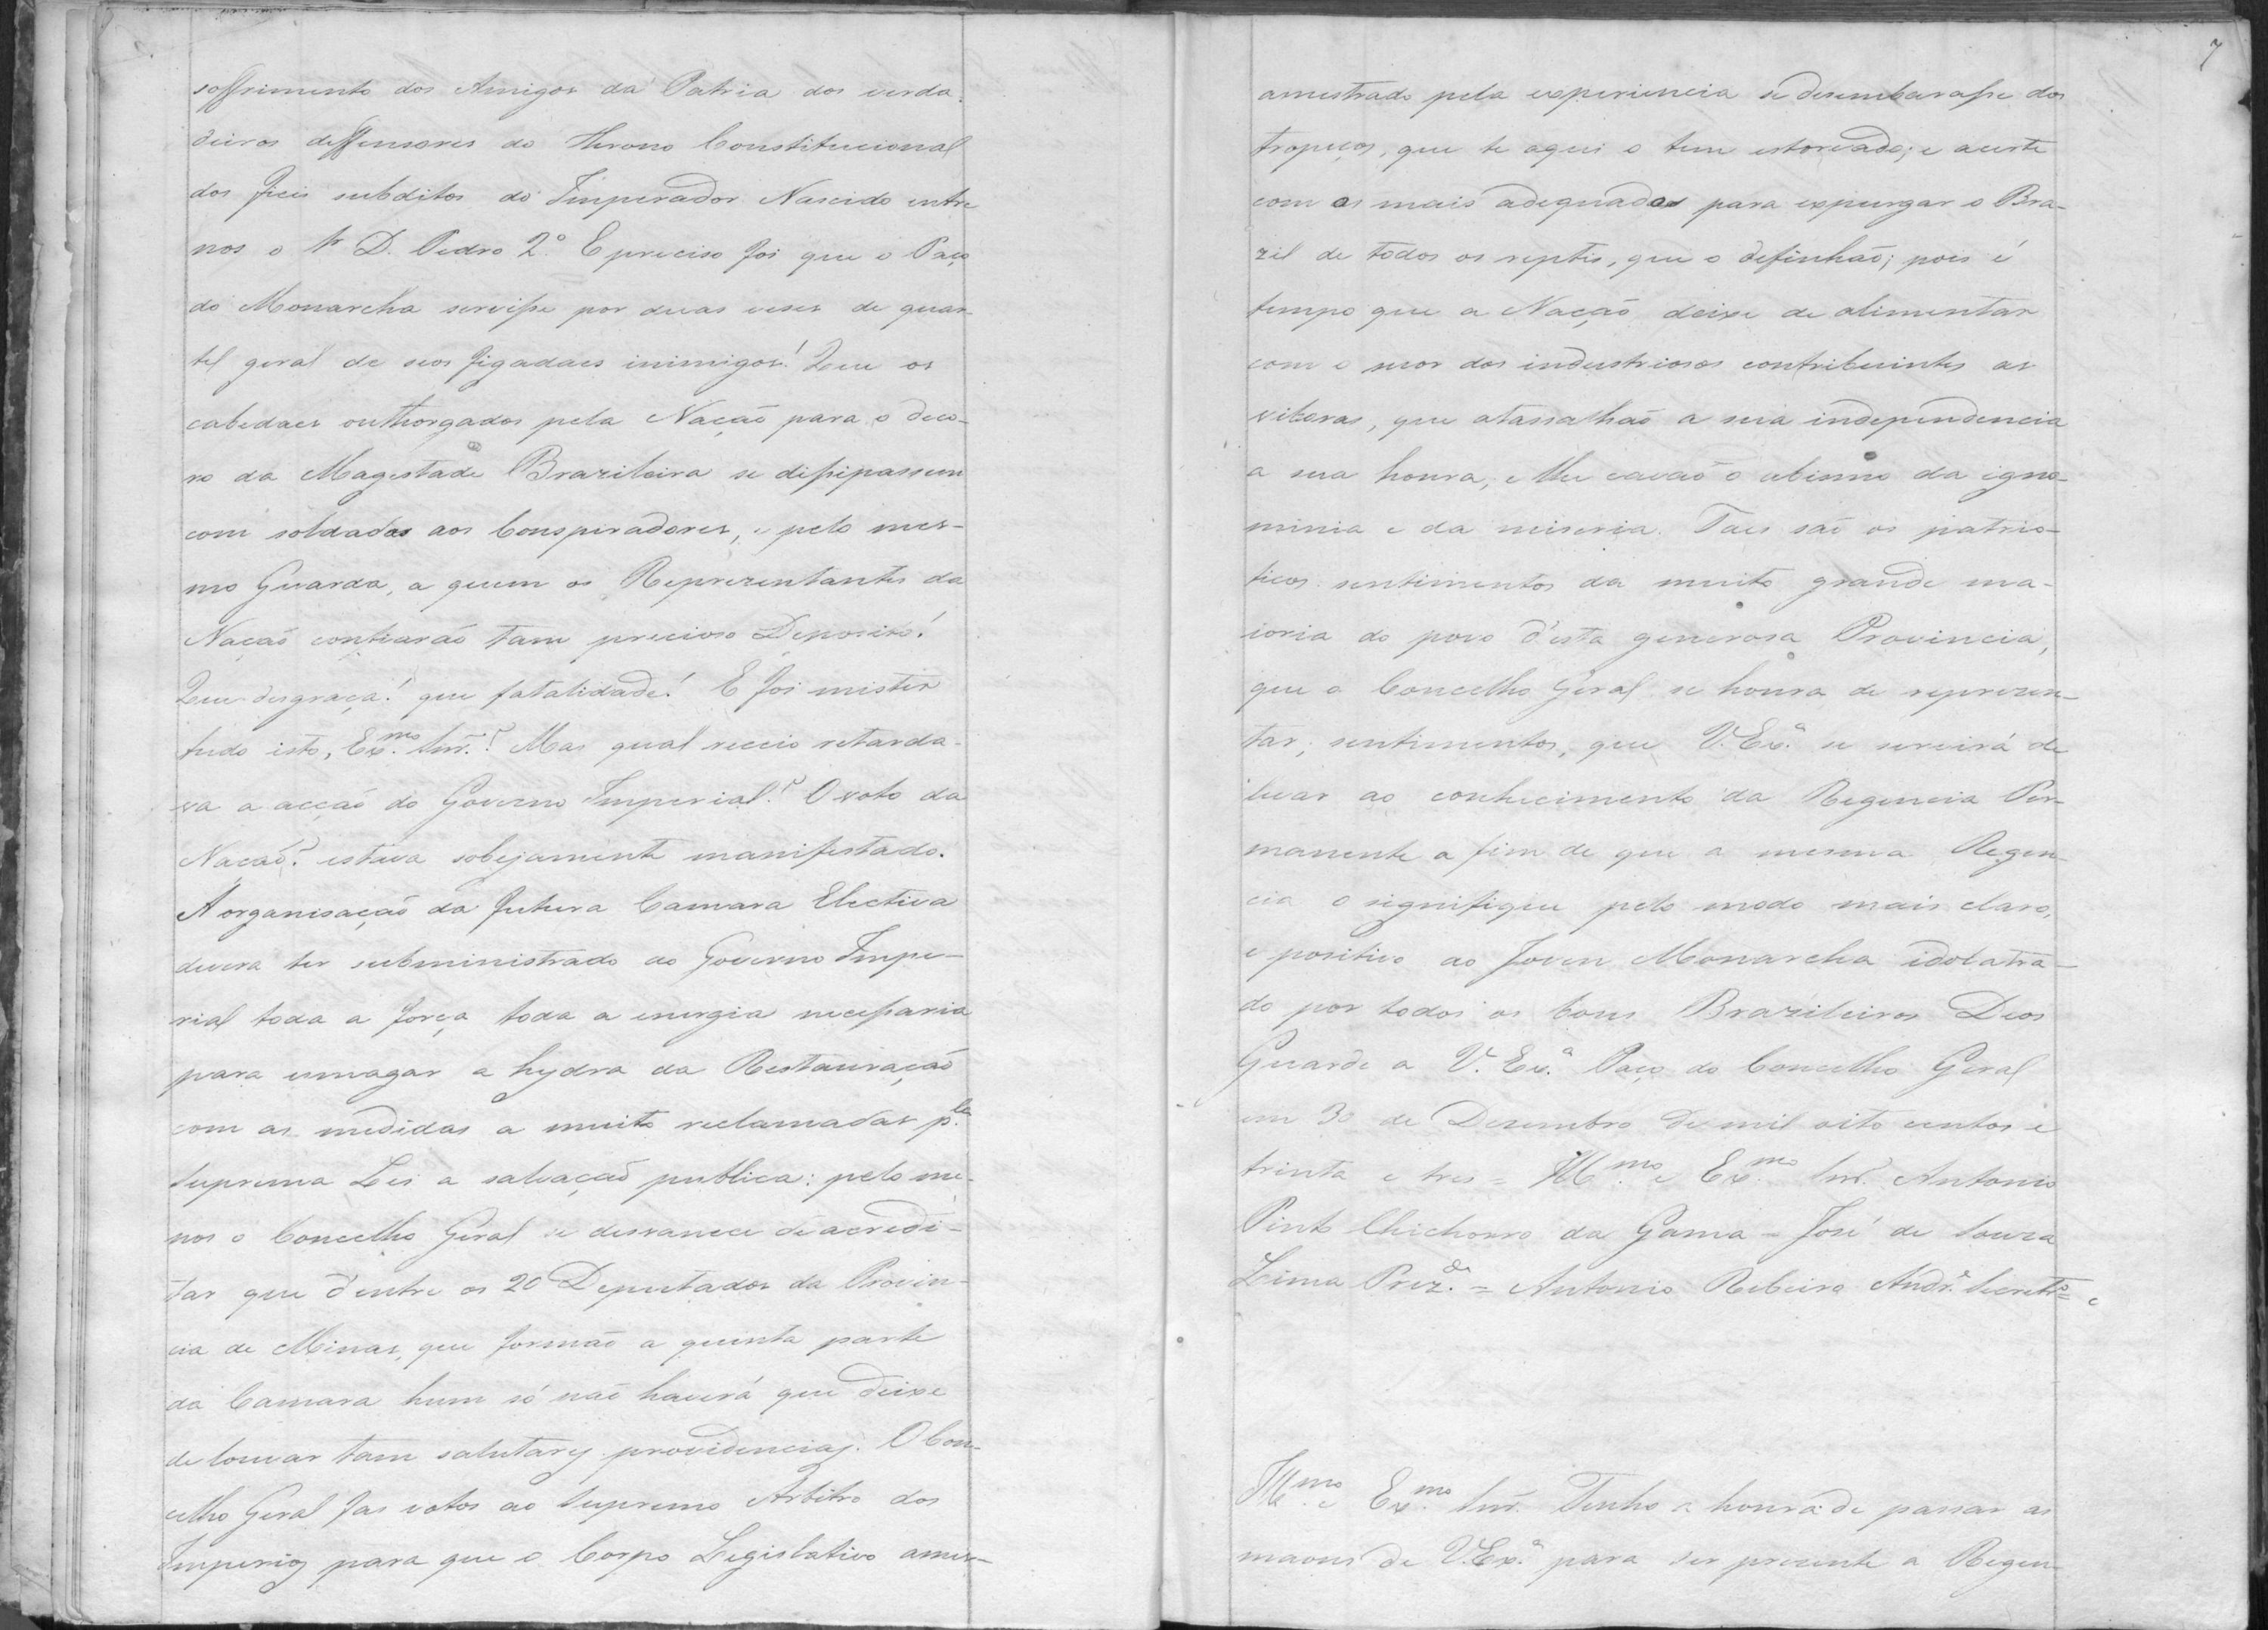 soffrimento dos Amigos da Patria dos verda-
deiros deffensores do Throno Constitucional
dos fieis subditos do Imperador Nascido entre
nos o Sr D. Pedro 2º E preciso foi que o Paço
do Monarcha servisse por duas veses de quar-
tel geral de seos figadaes inimigos! Que os
cabedaes outhorgados pela Nação para o deco-
ro da Magestade Brazileira se dissipassem
com soldadas aos Conspiradores, e pelo mes-
mo Guarda, a quem os Reprezentantes da
Nação confiarão tam precioso Deposito!
Que desgraça! que fatalidade! E foi mister
tudo isto, Ex.mo Snr.? Mas qual receio retarda-
va a acção do Governo Imperial? O voto da
Nação? estava sobejamente manifestado.
A organisação da futura Camara Electiva
devera ter subministrado ao Governo Impe-
rial toda a força toda a energia necessaria
para esmagar a hydra da Restauração
com as medidas a muito reclamadas p.la
Suprema Lei a salvação publica: pelo me-
nos o Concelho Geral se desvanece de acredi-
tar que d'entre os 20 Deputados da Provin-
cia de Minas, que formão a quinta parte
da Camara hum só não haverá que deixe
de louvar tam salutares providencias. O Con-
celho Geral fas votos ao Supremo Arbitro dos
Imperios para que o Corpo Legislativo ames-
7
amestrado pela experiencia se desembarasse dos
tropeços, que te aqui o tem estorvado; e acerte
com os mais adequados para expurgar o Bra-
zil de todos os reptis, que o definhão; pois é
tempo que a Nação deixe de alimentar
com o suor dos industriosos contribuintes as
viboras, que atassalhão a sua independencia
a sua honra, e lhe cavão o abismo da igno-
minia e da miseria. Taes são os patrio-
ticos sentimentos da muito grande ma-
ioria do povo d'esta generosa Provincia,
que o Concelho Geral se honra de reprezen-
tar; sentimentos, que V. Ex.a se servirá de
levar ao conhecimento da Regencia Per-
manente a fim de que a mesma Regen-
cia o signifique pelo modo mais claro,
e positivo ao Joven Monarcha idolatra-
do por todos os bons Brazileiros Deos
Guarde a V. Ex.a Paço do Concelho Geral
em 30 de Dezembro de mil oito centos e
trinta e tres = Ill.mo e Ex.mo Snr. Antonio
Pinto Chichorro da Gama = José de Souza
Lima Prez.de = Antonio Ribeiro Andr.e Secretr.o =
Ill.mo e Ex.mo Snr. Tenho a honra de passar as
maons de V. Ex.a para ser prezente a Regen-